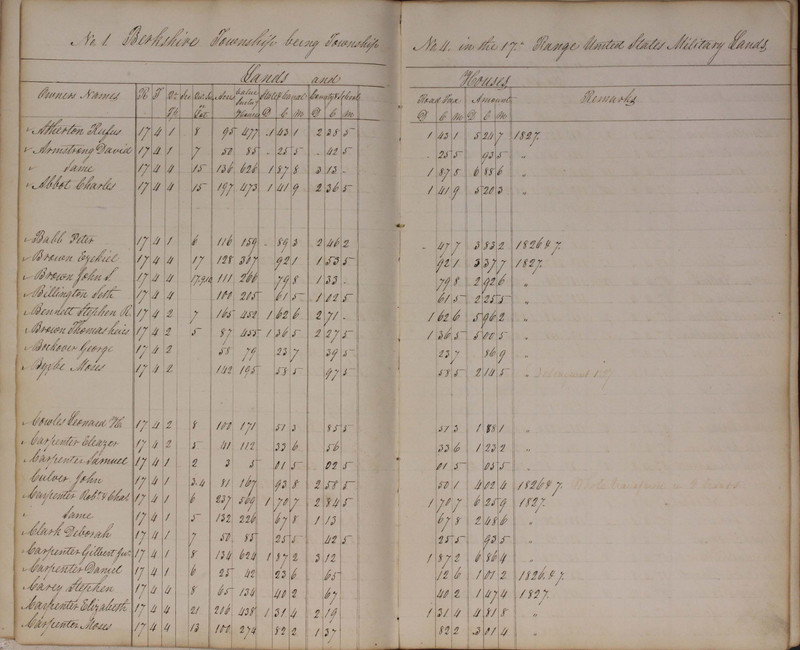 No. 1. Berkshire Township being Township No. 4. in the 17th Range United States Military Lands,
Lands and Houses
Owners Names R T Qr Sec Acres Value State & Canal County & School Road Tax Amount Remarks
Th Lot Houses D C M D C M D C M D C M
Atherton Rufus 17 4 1 8 95 477 1 43 1 2 38 5 1 43 1 5 24 7 1827.
Armstrong David 17 4 1 7 50 85 25 5 42 5 25 5 93 5 "
Same 17 4 4 15 136 626 1 87 8 3 13 1 87 8 6 88 6 "
Abbot Charles 17 4 4 15 197 473 1 41 9 2 36 5 1 41 9 5 20 3 "
Babb Peter 17 4 1 6 116 159 89 3 2 46 2 47 7 3 83 2 1826 & 7.
Brown Ezekiel 17 4 4 17 128 307 92 1 1 53 5 92 1 3 37 7 1827.
Brown John S. 17 4 4 111 266 79 8 1 33 79 8 2 92 6 "
Billington Seth 17 4 4 100 205 61 5 1 02 5 61 5 2 25 5 "
Bennett Stephen R. 17 4 2 7 165 452 1 62 6 2 71 1 62 6 5 96 2 "
Brown Thomas heirs 17 4 2 5 87 455 1 36 5 2 27 5 1 36 5 5 00 5 "
Bookover George 17 4 2 58 79 23 7 39 5 23 7 86 9 "
Bygbe Moses 17 4 2 142 195 58 5 97 5 58 5 2 14 5 "
Cowles Leonard H. 17 4 2 8 102 171 51 3 85 5 51 3 1 88 1 "
Carpenter Eleazer 17 4 2 5 41 112 33 6 56 33 6 1 23 2 "
Carpenter Samuel 17 4 1 2 3 5 01 5 02 5 01 5 05 5 "
Culver John 17 4 1 3.4 81 167 93 8 2 58 5 50 1 4 02 4 1826 & 7.
Carpenter Robt. & Chas. 17 4 1 6 237 569 1 70 7 2 84 5 1 70 7 6 25 9 1827.
Same 17 4 1 5 132 226 67 8 1 13 67 8 2 48 6 "
Clark Deborah 17 4 1 7 50 85 25 5 42 5 25 5 93 5 "
Carpenter Gilbert Jun. 17 4 1 8 134 624 1 87 2 3 12 1 87 2 6 86 4 "
Carpenter Daniel 17 4 1 6 25 42 23 6 65 12 6 1 01 2 1826. & 7.
Carey Stephen 17 4 4 8 65 134 40 2 67 40 2 1 47 4 1827.
Carpenter Elizabeth 17 4 4 21 216 438 1 31 4 2 19 1 31 4 4 81 8 "
Carpenter Moses 17 4 4 13 100 274 82 2 1 37 82 2 3 01 4 "